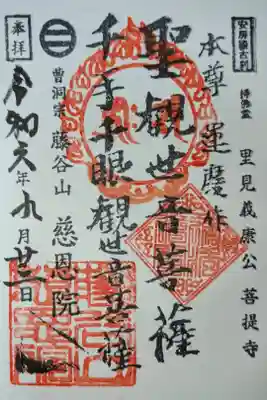 安房国古刹
持佛堂
里見義康公 菩提寺
本尊 運慶作
聖観世音菩薩
千手千眼観世音菩薩
曹洞宗 藤谷山 慈恩院
奉拝
令和元年九月廿二日